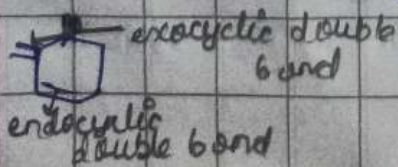 exocyclic double
bond
endocyclic
double bond